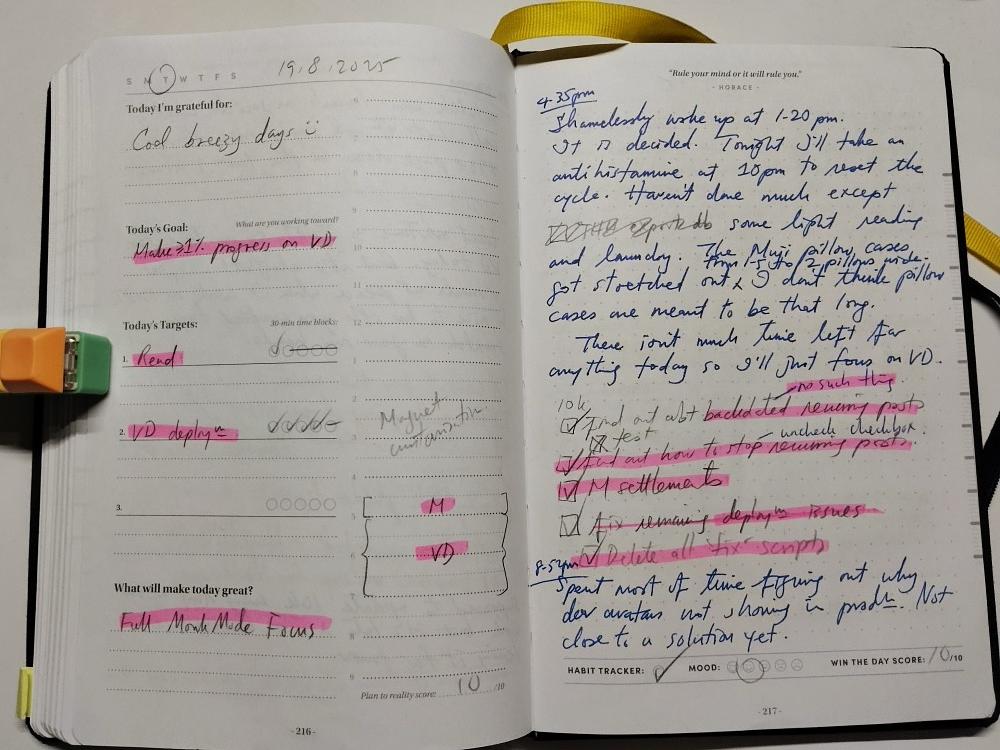 S M T W T F S 19.8.2025
Today I'm grateful for:
Cool breezy days
Today's Goal: What are you working toward?
Make ≥1% progress on VD
Today's Targets: 30-min time blocks:
1. Read
2. VD deploy
3.
What will make today great?
Full Monk Mode Focus
6
7
8
9
10
11
12
1
2
3
Magnet
4
5
M
6
VD
7
8
9
Plan to reality score: 10 /10
- 216 -
"Rule your mind or it will rule you."
- HORACE -
4-35pm
Shamelessly woke up at 1-20 pm.
It is decided. Tonight I'll take an
antihistamine at 10pm to reset the
cycle. Haven't done much except
some light reading
and laundry. The Muji pillow cases
got stretched out from 1-5 to 2 pillows wide. I don't think pillow
cases are meant to be that long.
There isn't much time left for
anything today so I'll just focus on VD.
no such thing.
10k
Find out abt backdated recurring posts
test
uncheck checkbox.
Find out how to stop recurring posts.
M settlements
fix remaining deploym issues
Delete all "fix" scripts
8-52pm
Spent most of time figuring out why
dev avatars not showing in prod. Not
close to a solution yet.
HABIT TRACKER: MOOD: WIN THE DAY SCORE: 10/10
- 217 -